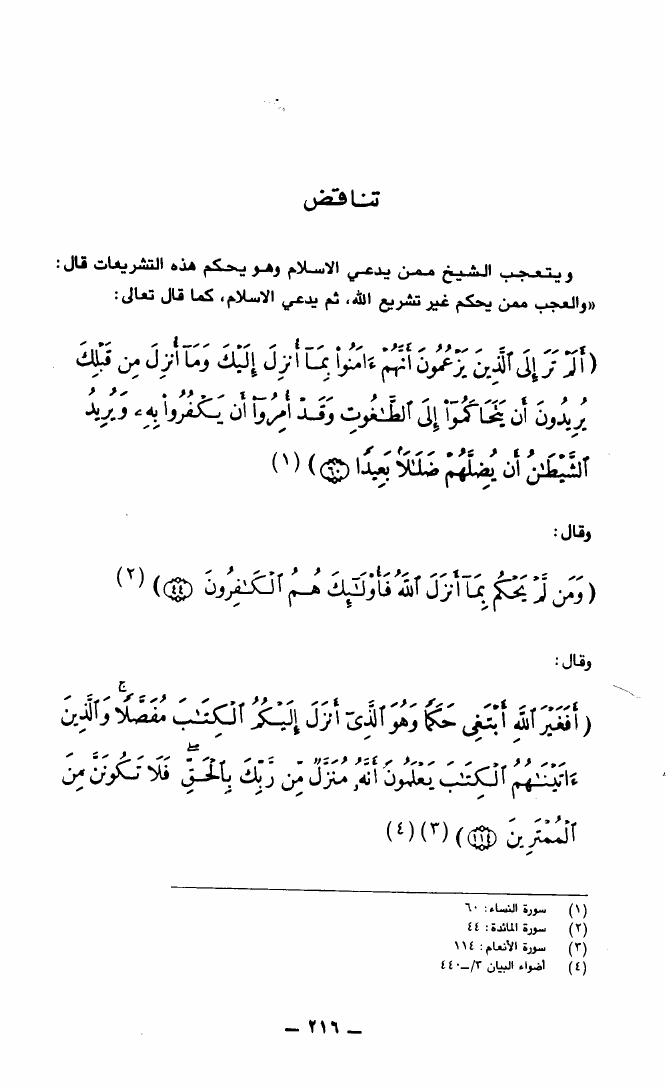 تناقض
ويتعجب الشيخ ممن يدعي الاسلام وهو يحكم هذه التشريعات قال:
«والعجب ممن يحكم غير تشريع الله، ثم يدعي الاسلام، كما قال تعالى:
(أَلَمْ تَرَ إِلَى ٱلَّذِينَ يَزْعُمُونَ أَنَّهُمْ ءَامَنُوا۟ بِمَآ أُنزِلَ إِلَيْكَ وَمَآ أُنزِلَ مِن قَبْلِكَ
يُرِيدُونَ أَن يَتَحَاكَمُوٓا۟ إِلَى ٱلطَّٰغُوتِ وَقَدْ أُمِرُوٓا۟ أَن يَكْفُرُوا۟ بِهِۦ وَيُرِيدُ
ٱلشَّيْطَٰنُ أَن يُضِلَّهُمْ ضَلَٰلًۢا بَعِيدًا ٦٠) (١)
وقال:
(وَمَن لَّمْ يَحْكُم بِمَآ أَنزَلَ ٱللَّهُ فَأُو۟لَٰٓئِكَ هُمُ ٱلْكَٰفِرُونَ ٤٤) (٢)
وقال:
(أَفَغَيْرَ ٱللَّهِ أَبْتَغِى حَكَمًا وَهُوَ ٱلَّذِىٓ أَنزَلَ إِلَيْكُمُ ٱلْكِتَٰبَ مُفَصَّلًا ۚ وَٱلَّذِينَ
ءَاتَيْنَٰهُمُ ٱلْكِتَٰبَ يَعْلَمُونَ أَنَّهُۥ مُنَزَّلٌ مِّن رَّبِّكَ بِٱلْحَقِّ ۖ فَلَا تَكُونَنَّ مِنَ
ٱلْمُمْتَرِينَ ١١٤) (٣) (٤)
(١) سورة النساء: ٦٠
(٢) سورة المائدة: ٤٤
(٣) سورة الأنعام: ١١٤
(٤) أضواء البيان ٣/-٤٤٠
— ٢١٦ —